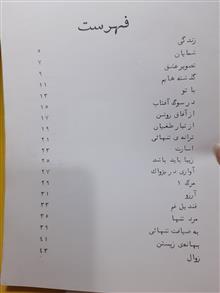 فهرست
زندگی ۵
شمایان ۷
تصویر عشق ۹
گذشته هایم ۱۱
با تو ۱۳
در سوگ آفتاب ۱۵
از آقای روشن ۱۷
از تبار طغیان ۱۹
ترانه ی تنهائی ۲۱
اسارت ۲۳
زیبا باید باشد ۲۵
آواری در پژواک ۲۷
مرگ ۱ ۲۹
آرزو ۳۱
قندیل غم ۳۳
مرد تنها ۳۵
به ضیافت تنهائی ۳۹
بهانه‌ی زیستن ۴۱
زوال ۴۳